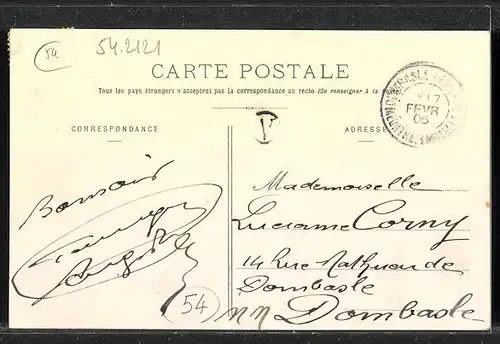 54
54.2121
CARTE POSTALE
Tous les pays étrangers n'acceptent pas la correspondance au recto (Se renseigner à la
CORRESPONDANCE
ADRESSE
17
FEVR
05
Bonsoir
Mademoiselle
Lucienne Corny
14 Rue Mathieu de
Dombasle
Dombasle
54